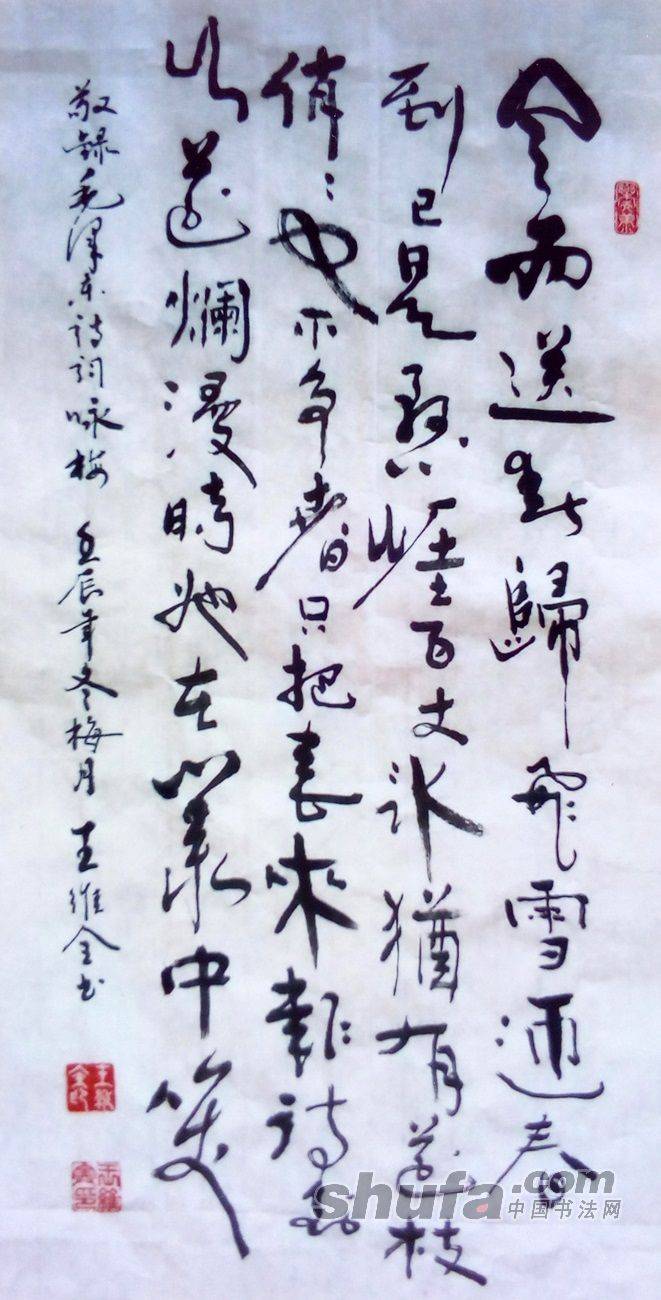 风雨送春歸飛雪迎春
到已是懸崖百丈冰猶有花枝
俏〻也不争春只把春來報待到
山花爛漫時她在叢中笑
敬録毛澤东詩詞咏梅 壬辰年冬梅月 王維全书
shufa.com
中国书法网